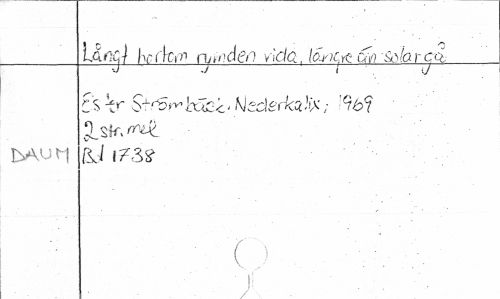 Långt bortom rymden vida, längre än solar gå
Ester Strömbäck, Nederkalix, 1969
2 str. mel
DAUM Bd 1738